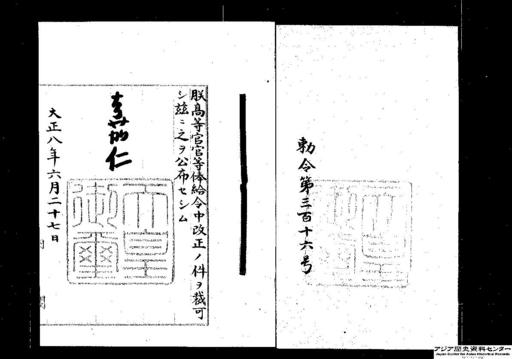 勅令第三百十六号
朕高等官官等俸給令中改正ノ件ヲ裁可
シ茲ニ之ヲ公布セシム
嘉仁
天皇
御璽
大正八年六月二十七日
アジア歴史資料センター
Japan Center for Asian Historical Records